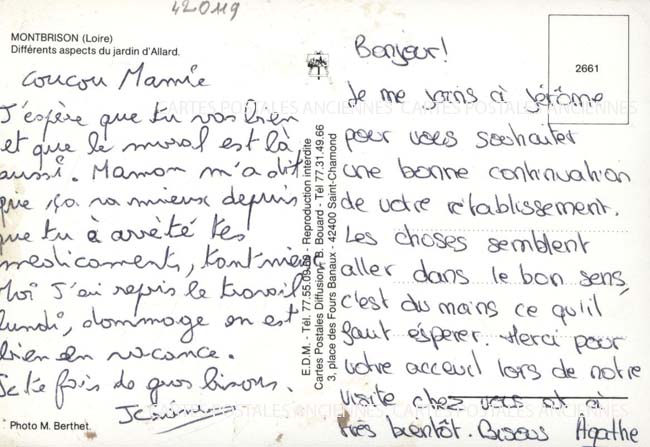 42019
MONTBRISON (Loire)
Différents aspects du jardin d'Allard.
coucou Mamie
J'espère que tu vas bien
et que le moral est là
aussi. Maman m'a dit
que ça va mieux depuis
que tu à arrété tes
medicaments, tant mieux
Moi J'ai repris le travail
lundi, dommage on est
bien en vacance.
Je te fais de gros bisous.
Photo M. Berthet.
E.D.M. - Tél. 77.55.09.69 - Reproduction interdite
Cartes Postales Diffusion, B. Bouard - Tél 77.31.49.66
3, place des Fours Banaux - 42400 Saint-Chamond
2661
Bonjour!
Je me joins à Jérôme
pour vous souhaiter
une bonne continuation
de votre rétablissement.
Les choses semblent
aller dans le bon sens,
c'est du moins ce qu'il
faut esperer. Merci pour
votre acceuil lors de notre
visite chez vous et à
très bientôt. Bisous Agathe
CARTES POSTALES ANCIENNES
CARTES POSTALES ANCIENNES
CARTES POSTALES ANCIENNES